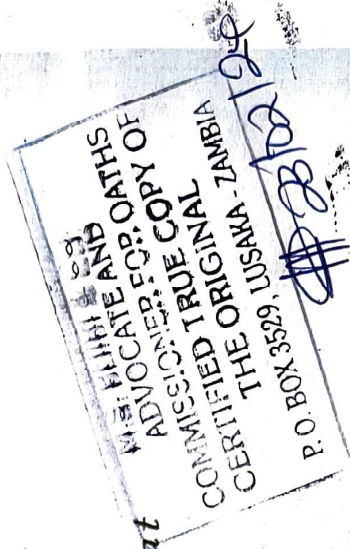 ADVOCATE AND
COMMISSIONER FOR OATHS
CERTIFIED TRUE COPY OF
THE ORIGINAL
P.O. BOX 3529, LUSAKA - ZAMBIA
28/02/24